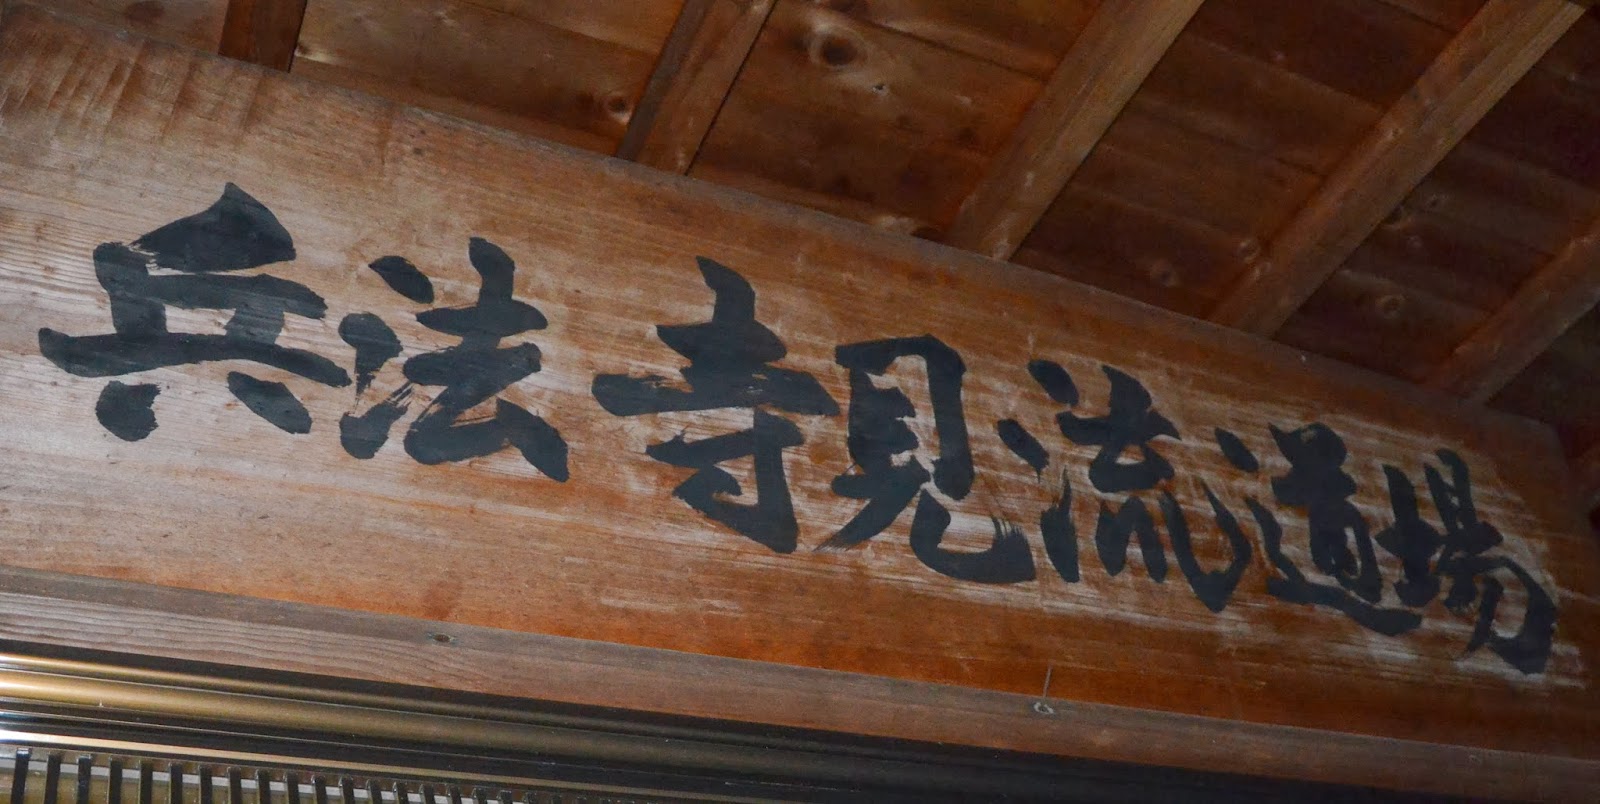 兵法寺見流道場